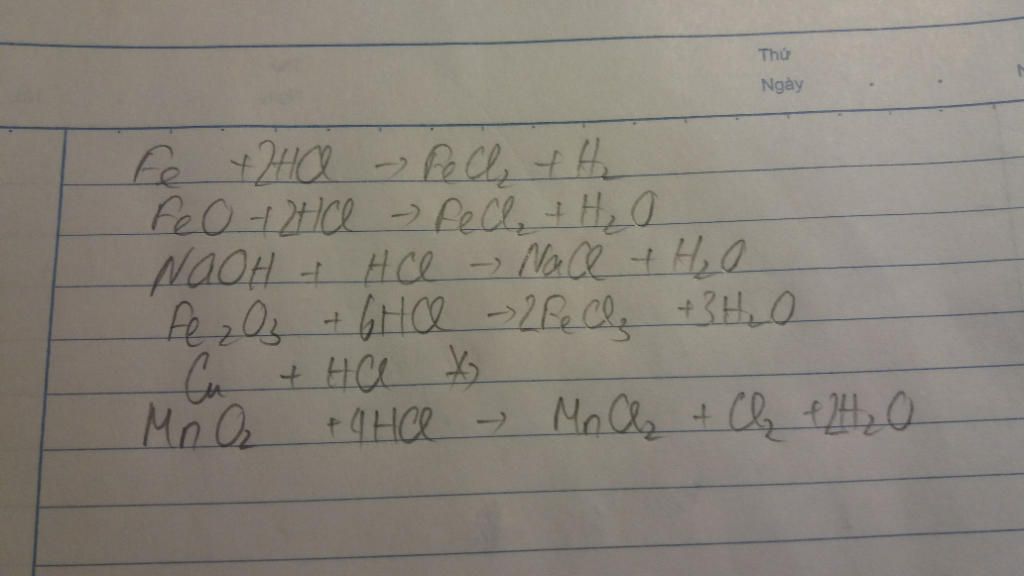 Thứ
Ngày
Fe + 2HCl → FeCl₂ + H₂
FeO + 2HCl → FeCl₂ + H₂O
NaOH + HCl → NaCl + H₂O
Fe₂O₃ + 6HCl → 2FeCl₃ + 3H₂O
Cu + HCl ↛
MnO₂ + 4HCl → MnCl₂ + Cl₂ + 2H₂O